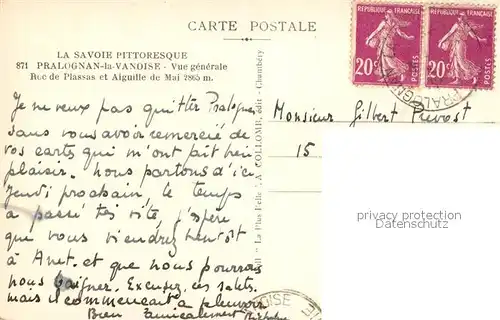 CARTE POSTALE
LA SAVOIE PITTORESQUE
871 PRALOGNAN-la-VANOISE - Vue générale
Roc de Plassas et Aiguille de Mai 2865 m.
Je ne veux pas quitter Pralognan
sans vous avoir remercié de
vos cartes qui m'ont fait bien
plaisir. Nous partons d'ici
jeudi prochain, le temps
a passé très vite, j'espère
que vous viendrez bientôt
à Anet. et que nous pourrons
nous baigner. Excusez ces saletés.
mais il commençait à pleuvoir
Bien amicalement
"La Plus Belle" A. COLLOMB, édit. - Chambéry
RÉPUBLIQUE FRANÇAISE
20c POSTES
RÉPUBLIQUE FRANÇAISE
20c POSTES
PRALOGNAN
Monsieur Gilbert Prevost
15
privacy protection
Datenschutz